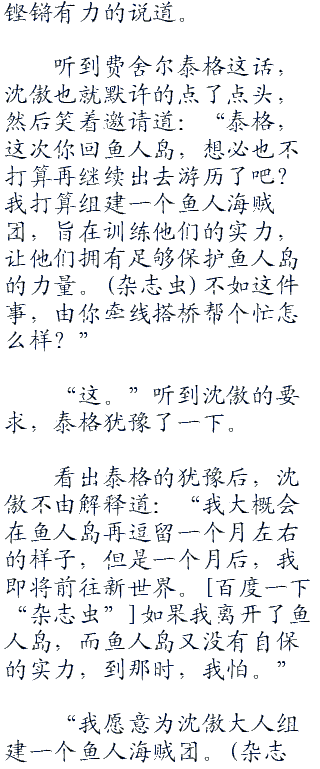 铿锵有力的说道。
听到费舍尔泰格这话，
沈傲也就默许的点了点头，
然后笑着邀请道：“泰格，
这次你回鱼人岛，想必也不
打算再继续出去游历了吧？
我打算组建一个鱼人海贼
团，旨在训练他们的实力，
让他们拥有足够保护鱼人岛
的力量。(杂志虫)不如这件
事，由你牵线搭桥帮个忙怎
么样？”
“这。”听到沈傲的要
求，泰格犹豫了一下。
看出泰格的犹豫后，沈
傲不由解释道：“我大概会
在鱼人岛再逗留一个月左右
的样子，但是一个月后，我
即将前往新世界。[百度一下
“杂志虫”]如果我离开了鱼
人岛，而鱼人岛又没有自保
的实力，到那时，我怕。”
“我愿意为沈傲大人组
建一个鱼人海贼团。(杂志